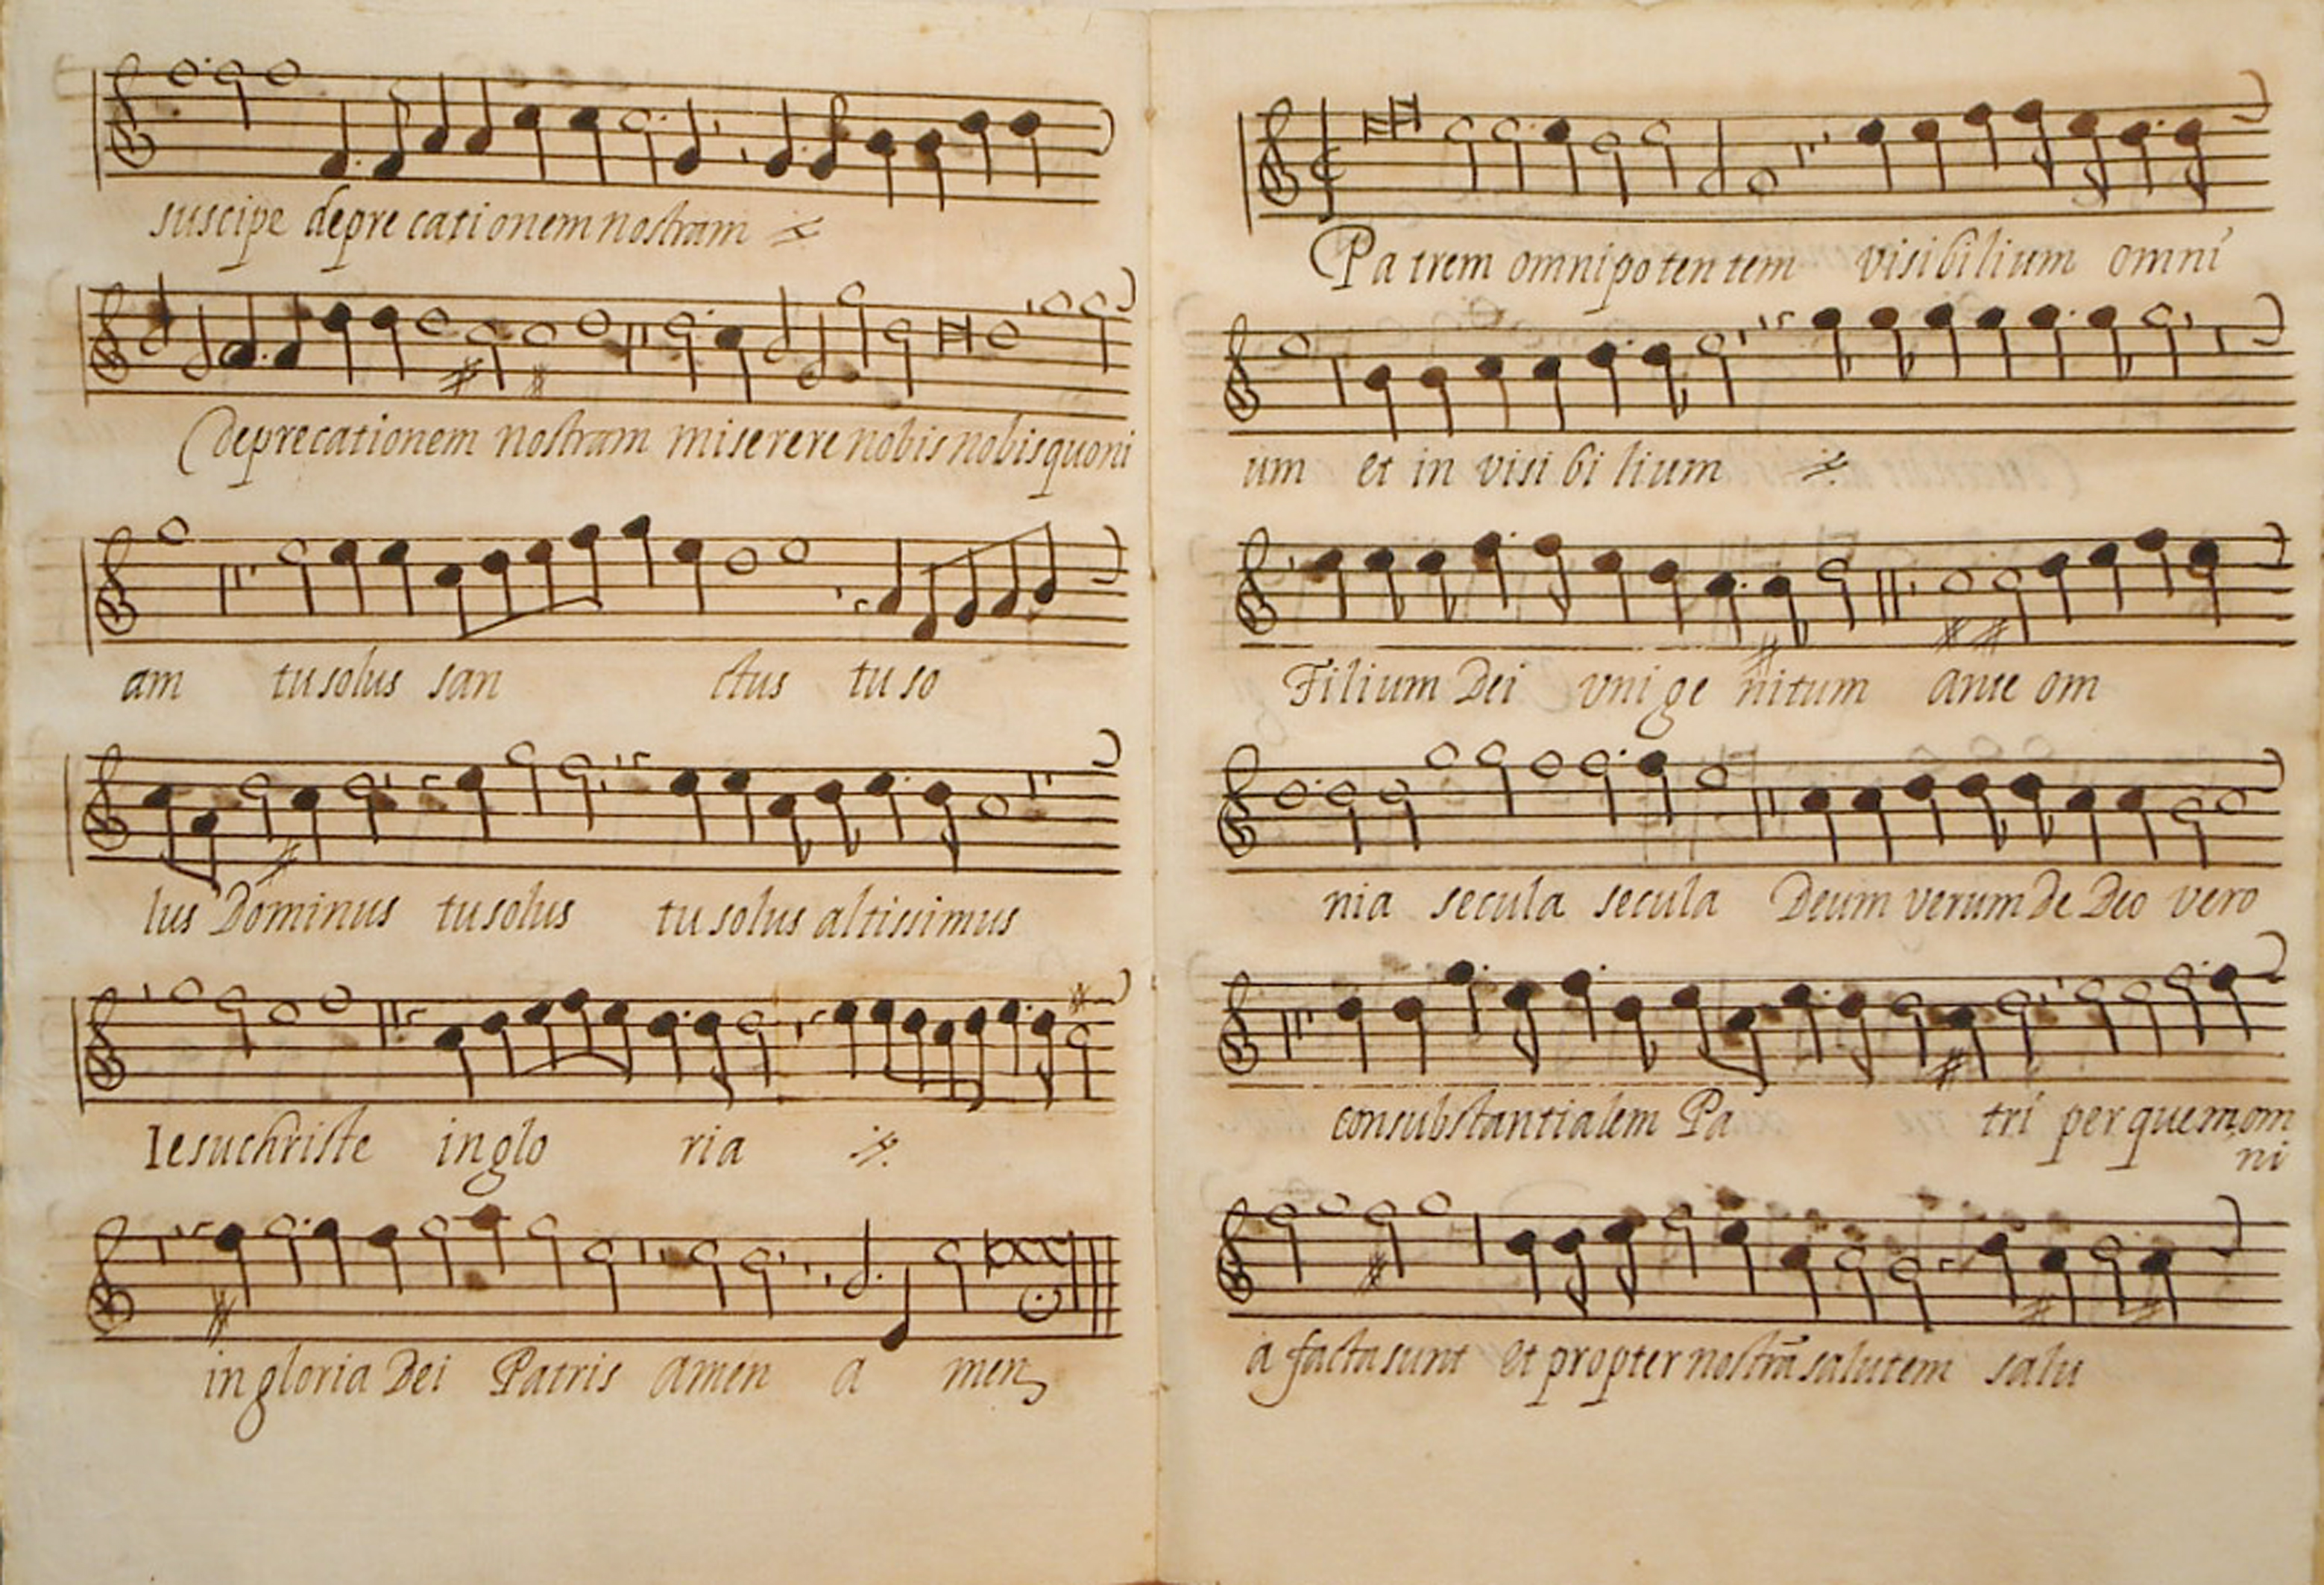 suscipe depre cationem nostram
deprecationem nostram miserere nobis nobis quoni
am tu solus san ctus tu so
lus Dominus tu solus tu solus altissimus
Iesu christe in glo ria
in gloria Dei Patris amen a men
Pa trem omnipo ten tem visibilium omni
um et in visi bi lium
Filium Dei vni ge nitum ante om
nia secula secula Deum verum de Deo vero
consubstantialem Pa tri per quem om
ni
a facta sunt et propter nostrã salutem salu